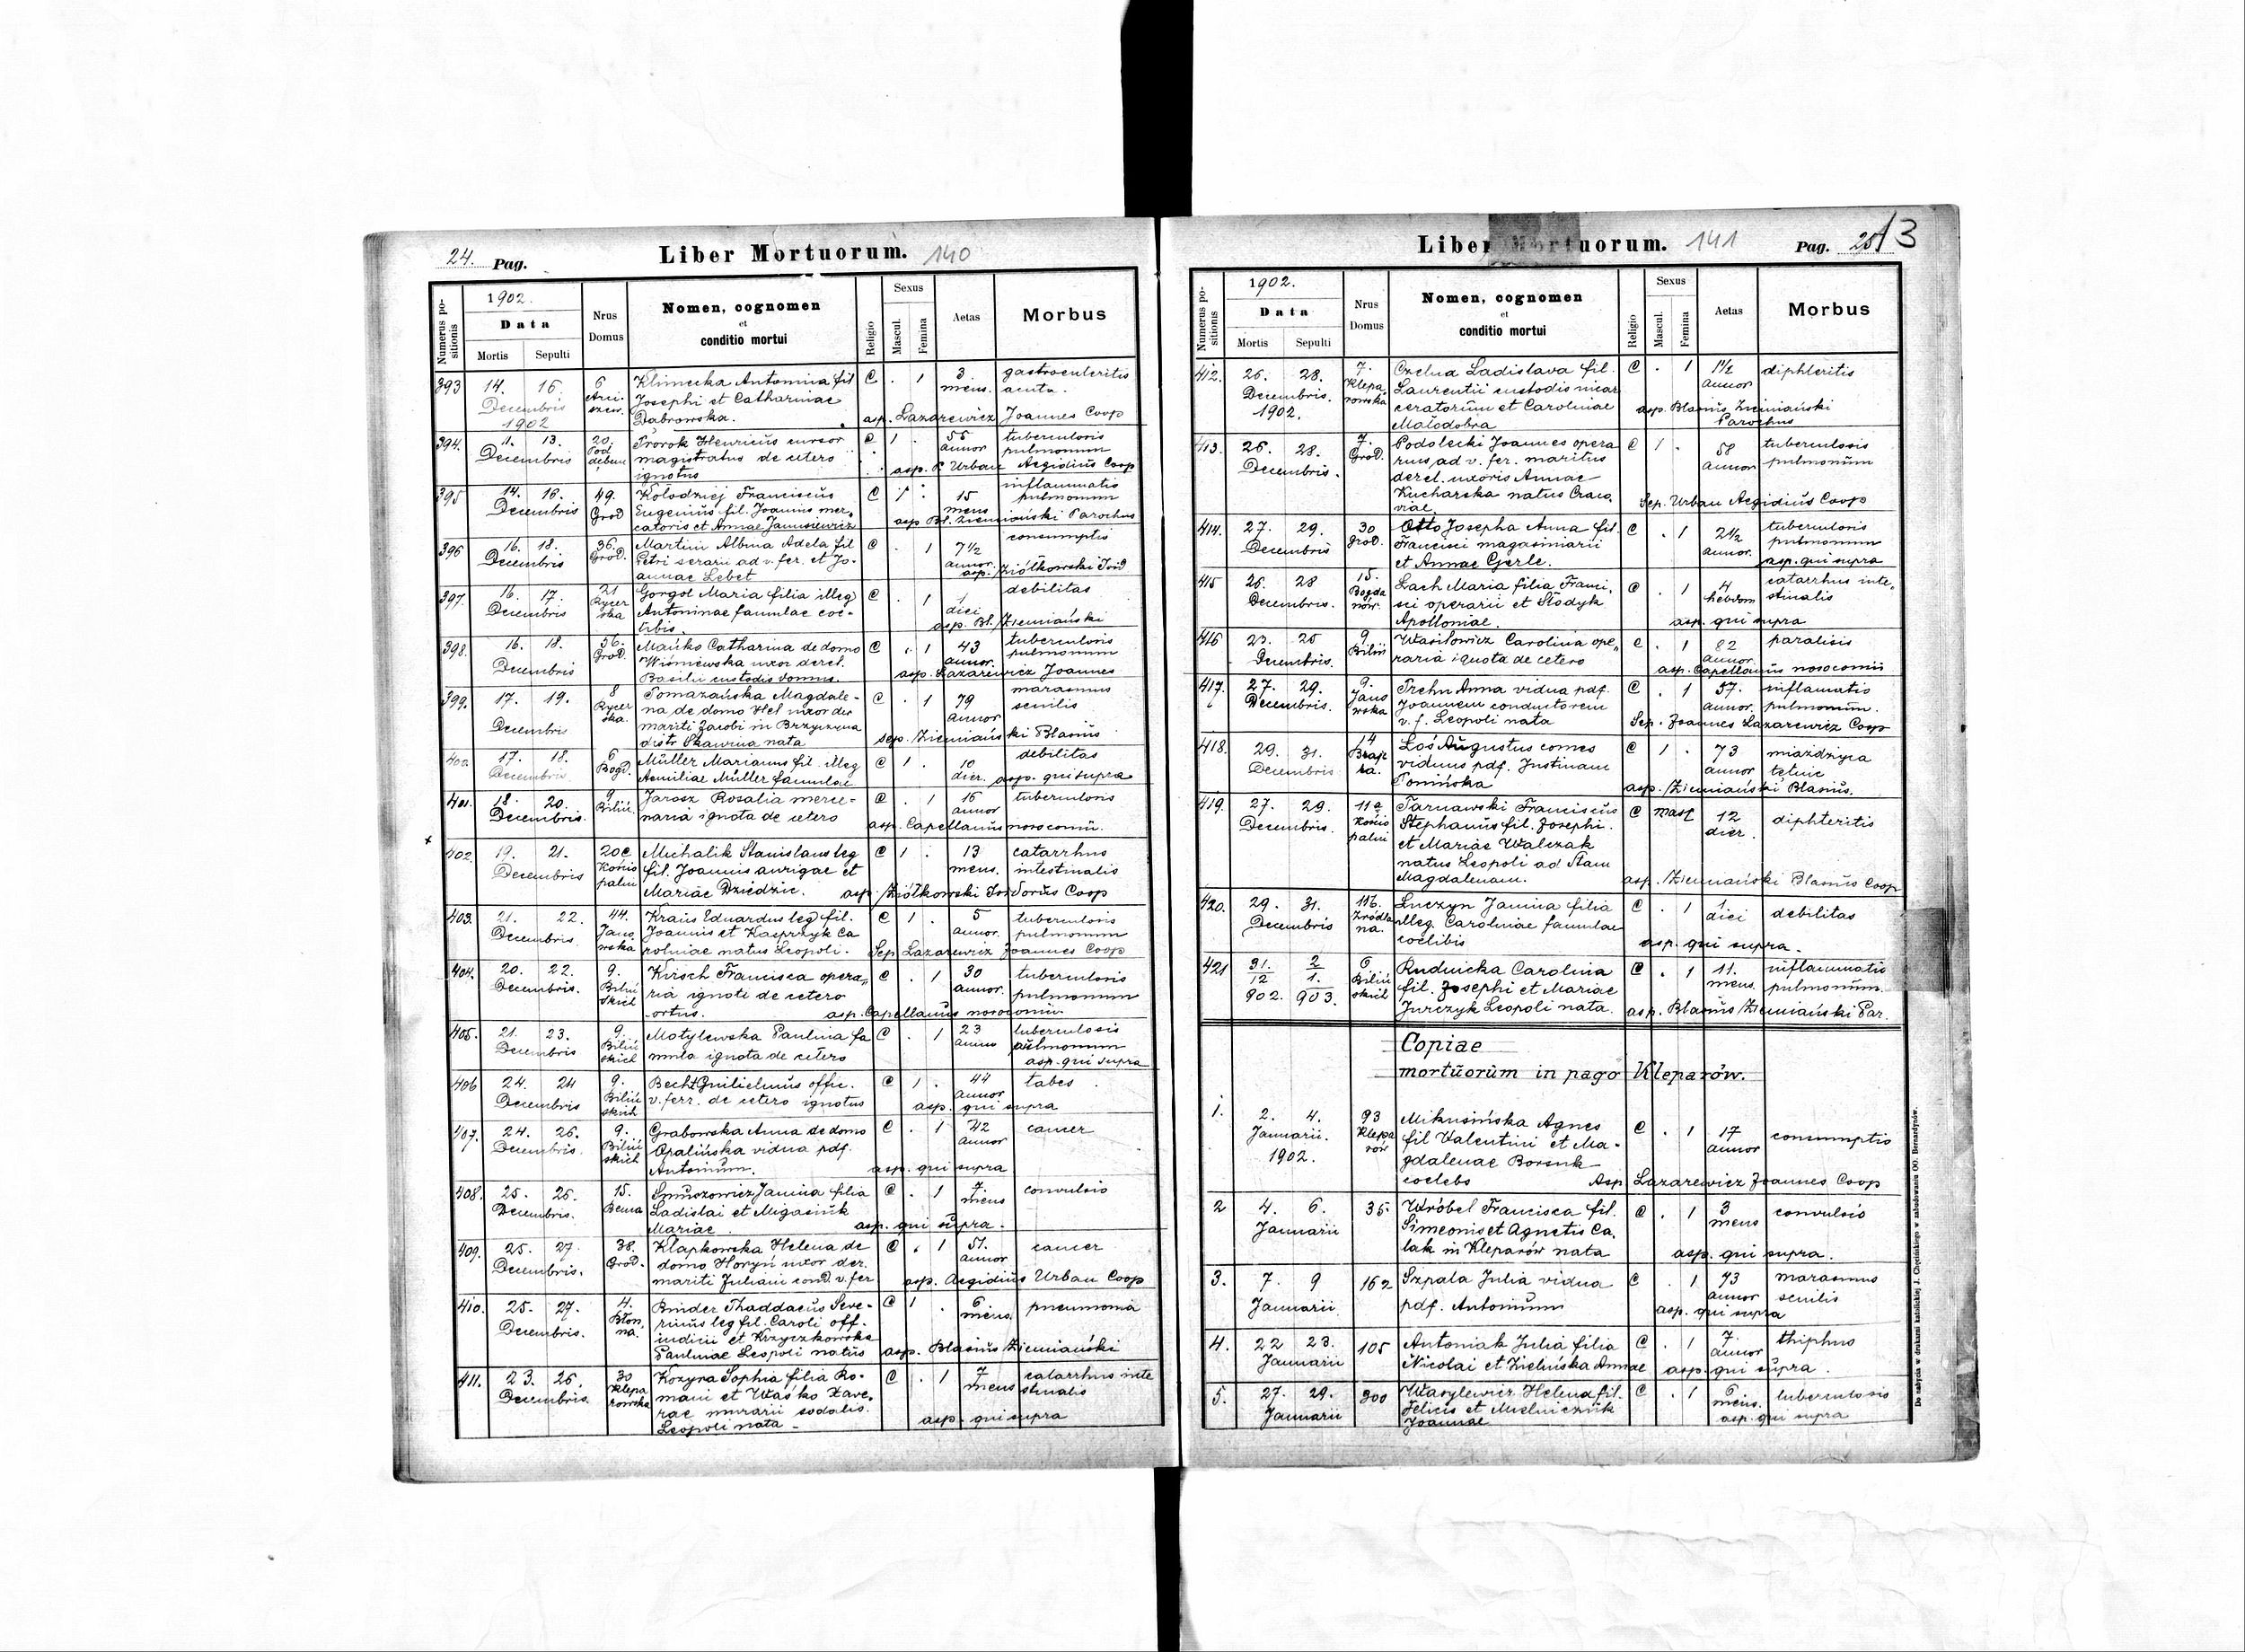 24. Pag. Liber Mortuorum. 140
Numerus positionis
1902.
Data
Mortis Sepulti
Nrus Domus
Nomen, cognomen
et
conditio mortui
Religio
Sexus
Mascul. Femina
Aetas
Morbus
393 14. 16. 6 Klimecka Antonina fil C . 1 3 gastroenteritis
Decembris Josephi et Catharinae mens. acuta.
1902 Dąbrowska. asp. Lazarewicz Joannes Coop
394. 11. 13. 20. Prorok Henricus cursor C 1 . 55 tuberculosis
Decembris magistratus de cetero annor pulmonum
ignotus asp. P. Urban Aegidius Coop
395 14. 16. 49. Kołodziej Franciscus C 1 . 15 inflammatio
Decembris Grod Eugenius fil. Joannis mer- mens pulmonum
catoris et Annae Janusiewicz asp Bl. Ziemiański Parochus
396 16. 18. 36. Martini Albina Adela fil C . 1 7 1/2 consumptio
Decembris Grod. Petri serarii ad v. fer. et Jo- annor.
annae Lebet asp. Ziółkowski Isid
397. 16. 17. 21 Gorgol Maria filia illeg C . 1 1 debilitas
Decembris Rycerska Antoninae famulae coe- diei
libis. asp. Bl. Ziemiański
398. 16. 18. 36. Mańko Catharina de domo C . 1 43 tuberculosis
Decembris Grod. Wiśniewska uxor derel. annor. pulmonum
Basilii custodis domus. asp. Lazarewicz Joannes
399. 17. 19. 8 Tomazańska Magdale- C . 1 79 marasmus
Decembris Rycerska. na de domo Hel uxor der annor senilis
mariti Jacobi in Brzyczyna
distr Skawina nata sep. Ziemiański Blasius
400. 17. 18. 6 Müller Marianus fil. illeg C 1 . 10 debilitas
Decembris. Bogd. Aemiliae Müller famulae dier. asp. qui supra
401. 18. 20. 9 Jarosz Rosalia merce- C . 1 16 tuberculosis
Decembris. Biliń. naria ignota de cetero annor
asp. Capellanus nosocomii.
402. 19. 21. 20c Michalik Stanislaus leg C 1 . 13 catarrhus
Decembris Kościopalni fil. Joannis aurigae et mens. intestinalis
Mariae Dziedzic. asp. Ziółkowski Isidorus Coop
403. 21. 22. 44. Kraus Eduardus leg fil. C 1 . 5 tuberculosis
Decembris. Janowska Joannis et Kasprzyk Ca annor. pulmonum
rolinae natus Leopoli. Sep Lazarewicz Joannes Coop
404. 20. 22. 9. Kirsch Francisca opera- C . 1 30 tuberculosis
Decembris. Bilińskich ria ignoti de cetero annor. pulmonum
ortus. asp. Capellanus nosocomii
405. 21. 23. 9. Motylewska Paulina fa C . 1 23 tuberculosis
Decembris Bilińskich mula ignota de cetero annor pulmonum
asp. qui supra
406 24. 24 9. Becht Guilielmus offic. C 1 . 44 tabes
Decembris Bilińskich v. ferr. de cetero ignotus annor
asp. qui supra
407. 24. 26. 9. Grabowska Anna de domo C . 1 42 cancer
Decembris. Bilińskich Opalińska vidua pdf. annor
Antonium. asp. qui supra
408. 25. 26. 15. Janina filia C . 1 7 convulsio
Decembris. Bema Ladislai et Migasiuk mens
Mariae asp. qui supra.
409. 25. 27. 38. Klapkowska Helena de C . 1 51. cancer
Decembris. Grod. domo Horyń uxor der. annor
mariti Juliani cond. v. fer asp. Aegidius Urban Coop
410. 25. 27. 4. Binder Thaddaeus Seve- C 1 . 6 pneumonia
Decembris. Błonna. rinus leg fil. Caroli off. mens.
iudicii et Krzyczkowska
Paulinae Leopoli natus asp. Blasius Ziemiański
411. 23. 26. 30 Kozyra Sophia filia Ro- C . 1 7 catarrhus inte
Decembris. Kleparowska mani et Waśko Xave- mens stinalis
rae murarii sodalis.
Leopoli nata - asp. qui supra
Liber Mortuorum. 141 Pag. 25 13
Numerus positionis
1902.
Data
Mortis Sepulti
Nrus Domus
Nomen, cognomen
et
conditio mortui
Religio
Sexus
Mascul. Femina
Aetas
Morbus
412. 26. 28. 7. Czelna Ladislava fil. C . 1 1 1/2 diphteritis
Decembris. Kleparowska Laurentii custodis incar annor
1902. ceratorum et Carolinae asp. Blasius Ziemiański
Małodobra Parochus
413. 26. 28. 7. Podolecki Joannes opera C 1 . 58 tuberculosis
Decembris. Grod. rius ad v. fer. maritus annor pulmonum
derel. uxoris Annae
Kucharska natus Craco. Sep. Urban Aegidius Coop
viae
414. 27. 29. 30 Otto Josepha Anna fil. C . 1 2 1/2 tuberculosis
Decembris Grod. Francisci magasiniarii annor. pulmonum
et Annae Gerle. asp. qui supra
415 26. 28 15. Lach Maria filia Franci- C . 1 4 catarrhus inte-
Decembris. Bogdanów. sci operarii et Słodyk hebdom stinalis
Apolloniae. asp. qui supra
416 23. 25 9. Wasiłowicz Carolina ope- C . 1 82 paralisis
Decembris. Biliń raria ignota de cetero annor
asp. Capellanus nosocomii
417. 27. 29. 9. Trehn Anna vidua pdf. C . 1 57. inflamatio
Decembris. Janowska Joannem conductorem annor. pulmonum.
v. f. Leopoli nata Sep. Joannes Lazarewicz Coop
418. 29. 31. 14 Łoś Augustus comes C 1 . 73 miażdżyca
Decembris viduus pdf. Justinam annor tętnic
Pomińska asp. Ziemiański Blasius.
419. 27. 29. 11a Tarnawski Franciscus C masc 12 diphteritis
Decembris. Kościopalni Stephanus fil. Josephi. dier.
et Mariae Walczak
natus Leopoli ad Stam
Magdalenam. asp. Ziemiański Blasius Coop
420. 29. 31. 11b. Luczyn Janina filia C . 1 1 debilitas
Decembris Źródlana. illeg. Carolinae famulae diei
coelibis asp. qui supra.
421 31. 2 6 Rudnicka Carolina C . 1 11. inflammatio
12 1. Bilińskich fil. Josephi et Mariae mens. pulmonum.
902. 903. Jurczyk Leopoli nata. asp. Blasius Ziemiański Par.
Copiae
mortuorum in pago Kleparów.
1. 2. 4. 93 Mikusińska Agnes C . 1 17 consumptio
Januarii. Kleparów fil Valentini et Ma- annor
1902. gdalenae Borsuk
coelebs Asp Lazarewicz Joannes Coop
2 4. 6. 35. Wróbel Francisca fil. C . 1 3 convulsio
Januarii Simeonis et Agnetis Ca. mens
lak in Kleparów nata asp. qui supra.
3. 7. 9 162 Szpala Julia vidua C . 1 73 marasmus
Januarii. pdf. Antonium annor senilis
asp. qui supra
4. 22 23. 105 Antoniak Julia filia C . 1 7. thiphus
Januarii Nicolai et Zielińska Annae annor
asp. qui supra.
5. 27. 29. 300 Wasylewicz Helena fil. C . 1 6 tuberculosis
Januarii Felicis et Mielniczuk mens.
Joannae asp. qui supra
Do nabycia w drukarni katolickiej J. Chęcińskiego w zabudowaniu OO. Bernardynów.